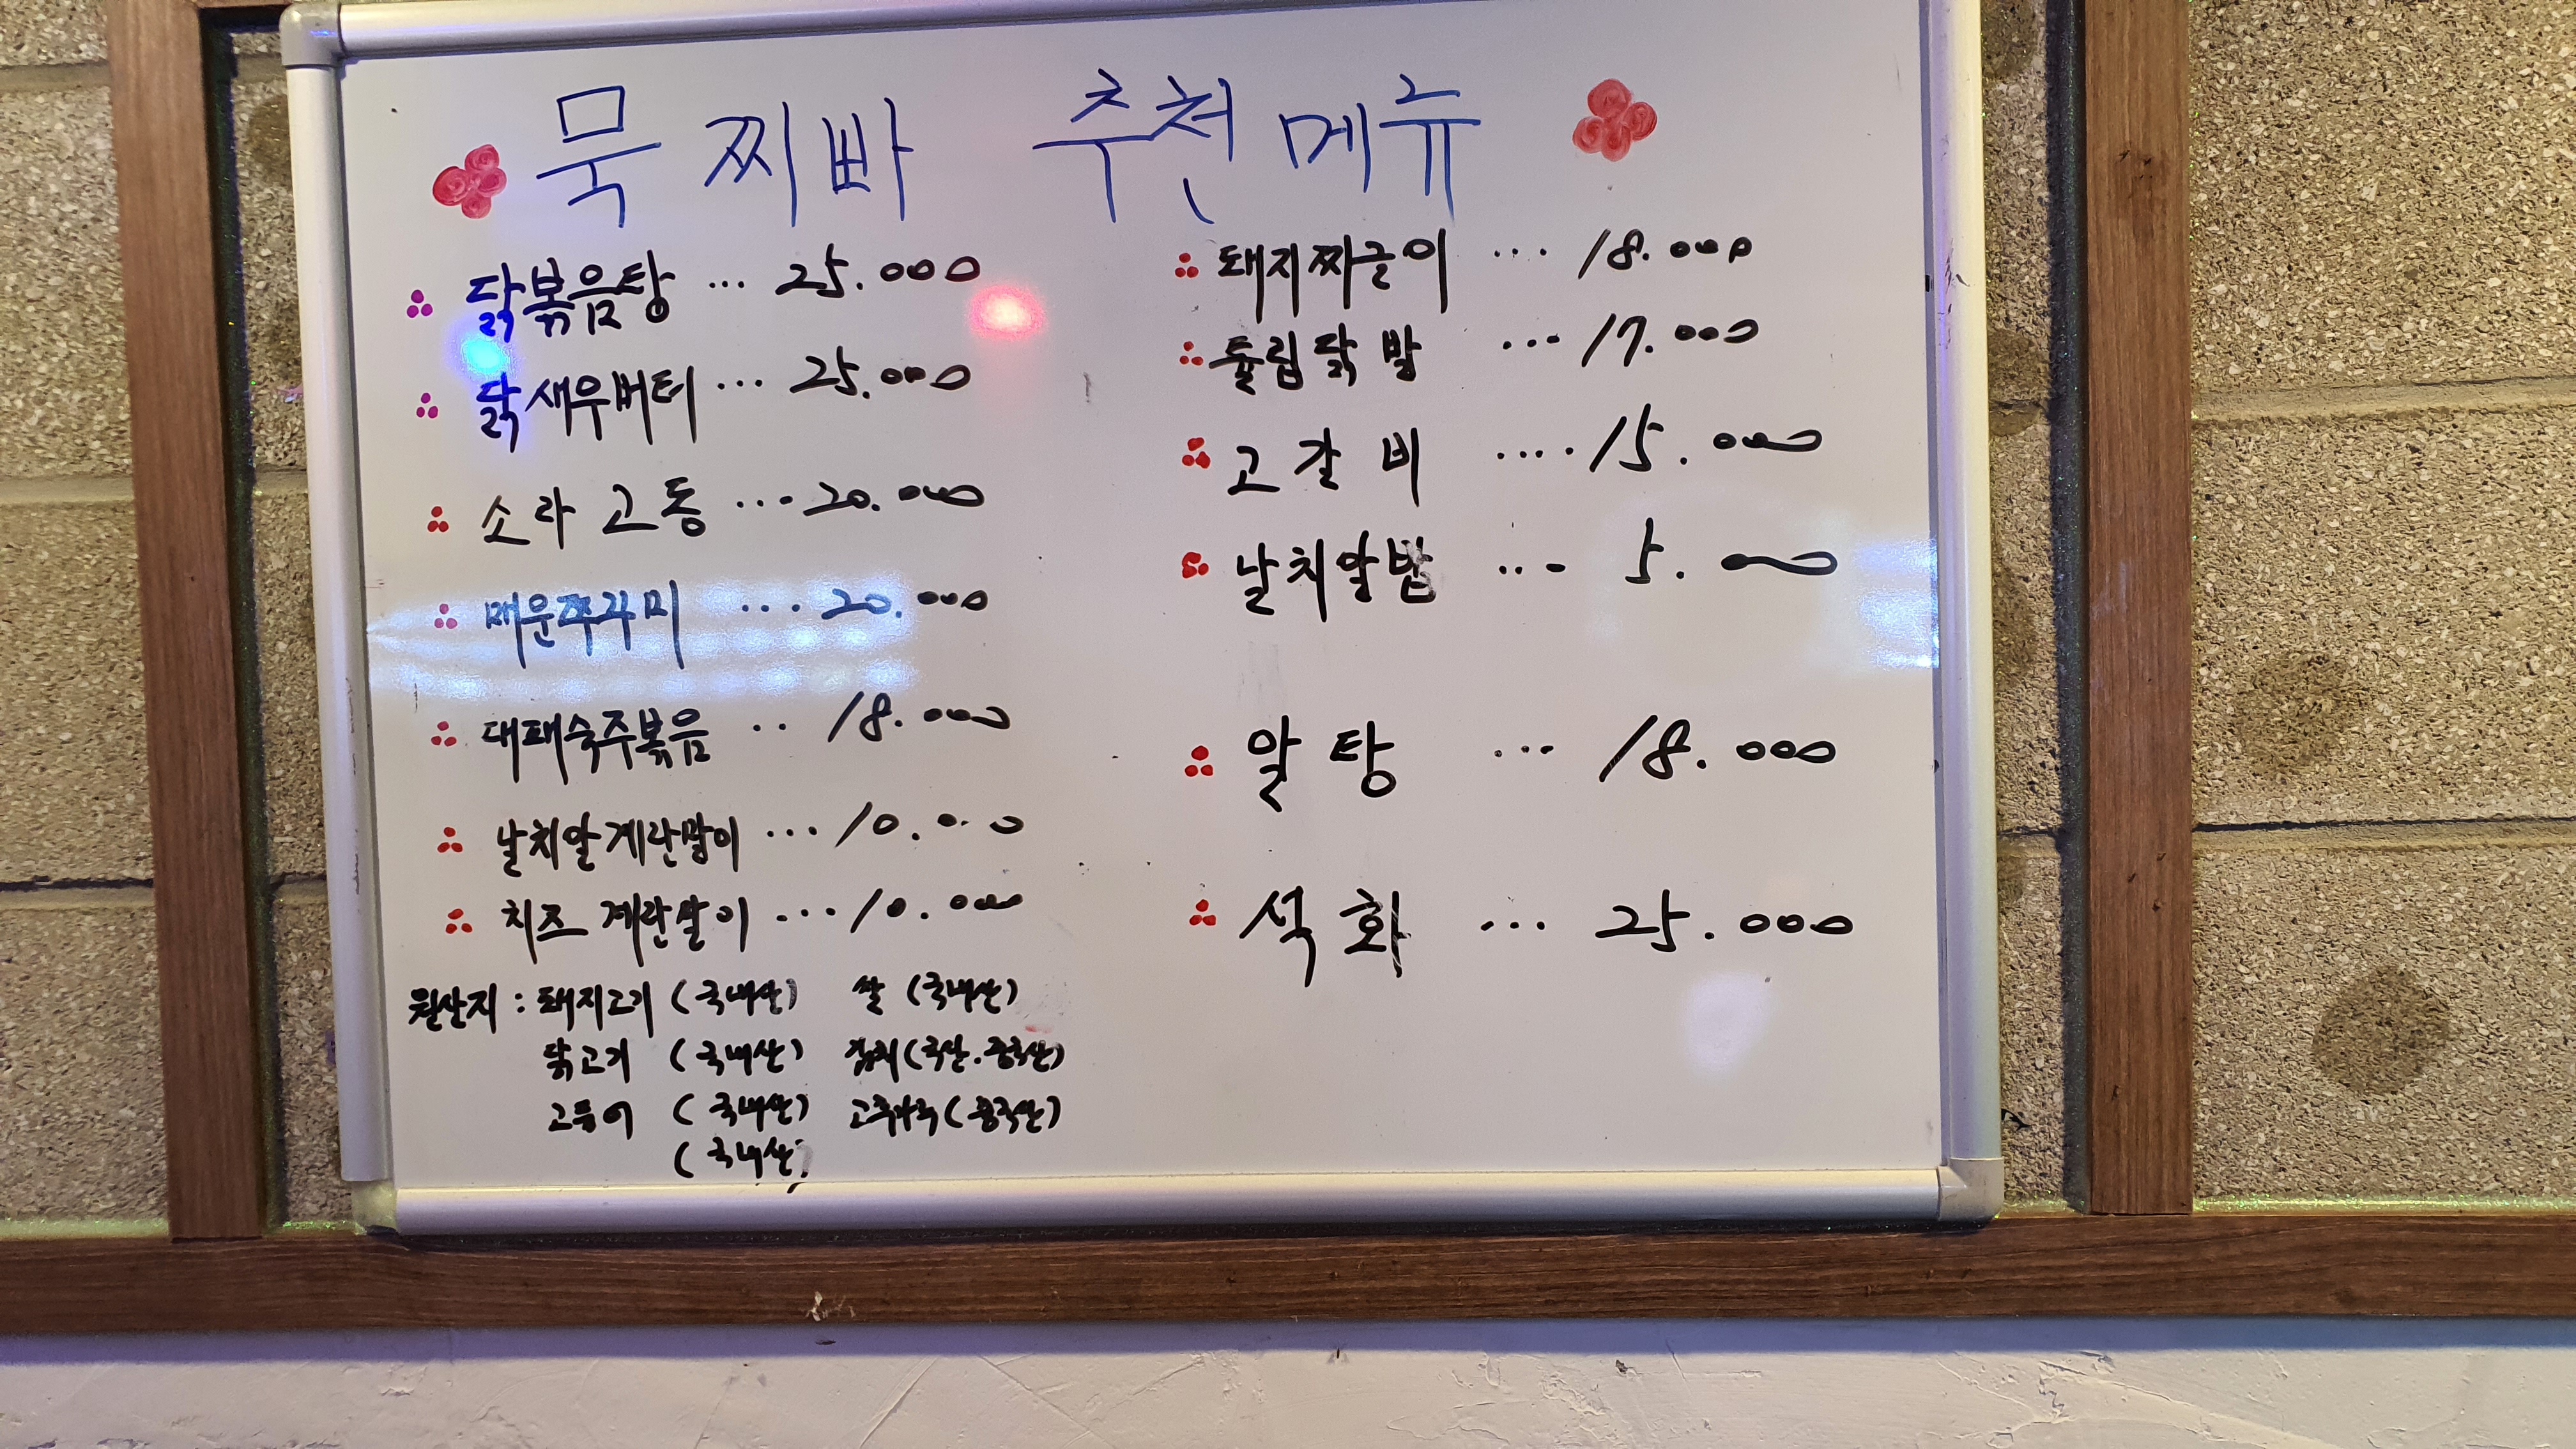 묵찌빠 추천메뉴
닭볶음탕 ... 25.000
닭새우버터 ... 25.000
소라고동 ... 20.000
매운쭈꾸미 ... 20.000
대패숙주볶음 .. 18.000
날치알계란말이 ... 10.000
치즈계란말이 ... 10.000
원산지 : 돼지고기 (국내산) 쌀 (국내산)
닭고기 (국내산) 김치 (국산.중국산)
고등어 (국내산) 고추가루 (중국산)
(국내산)
돼지짜글이 ... 18.000
튤립닭발 ... 17.000
고갈비 .... 15.000
날치알밥 ... 5.000
알탕 ... 18.000
석화 ... 25.000